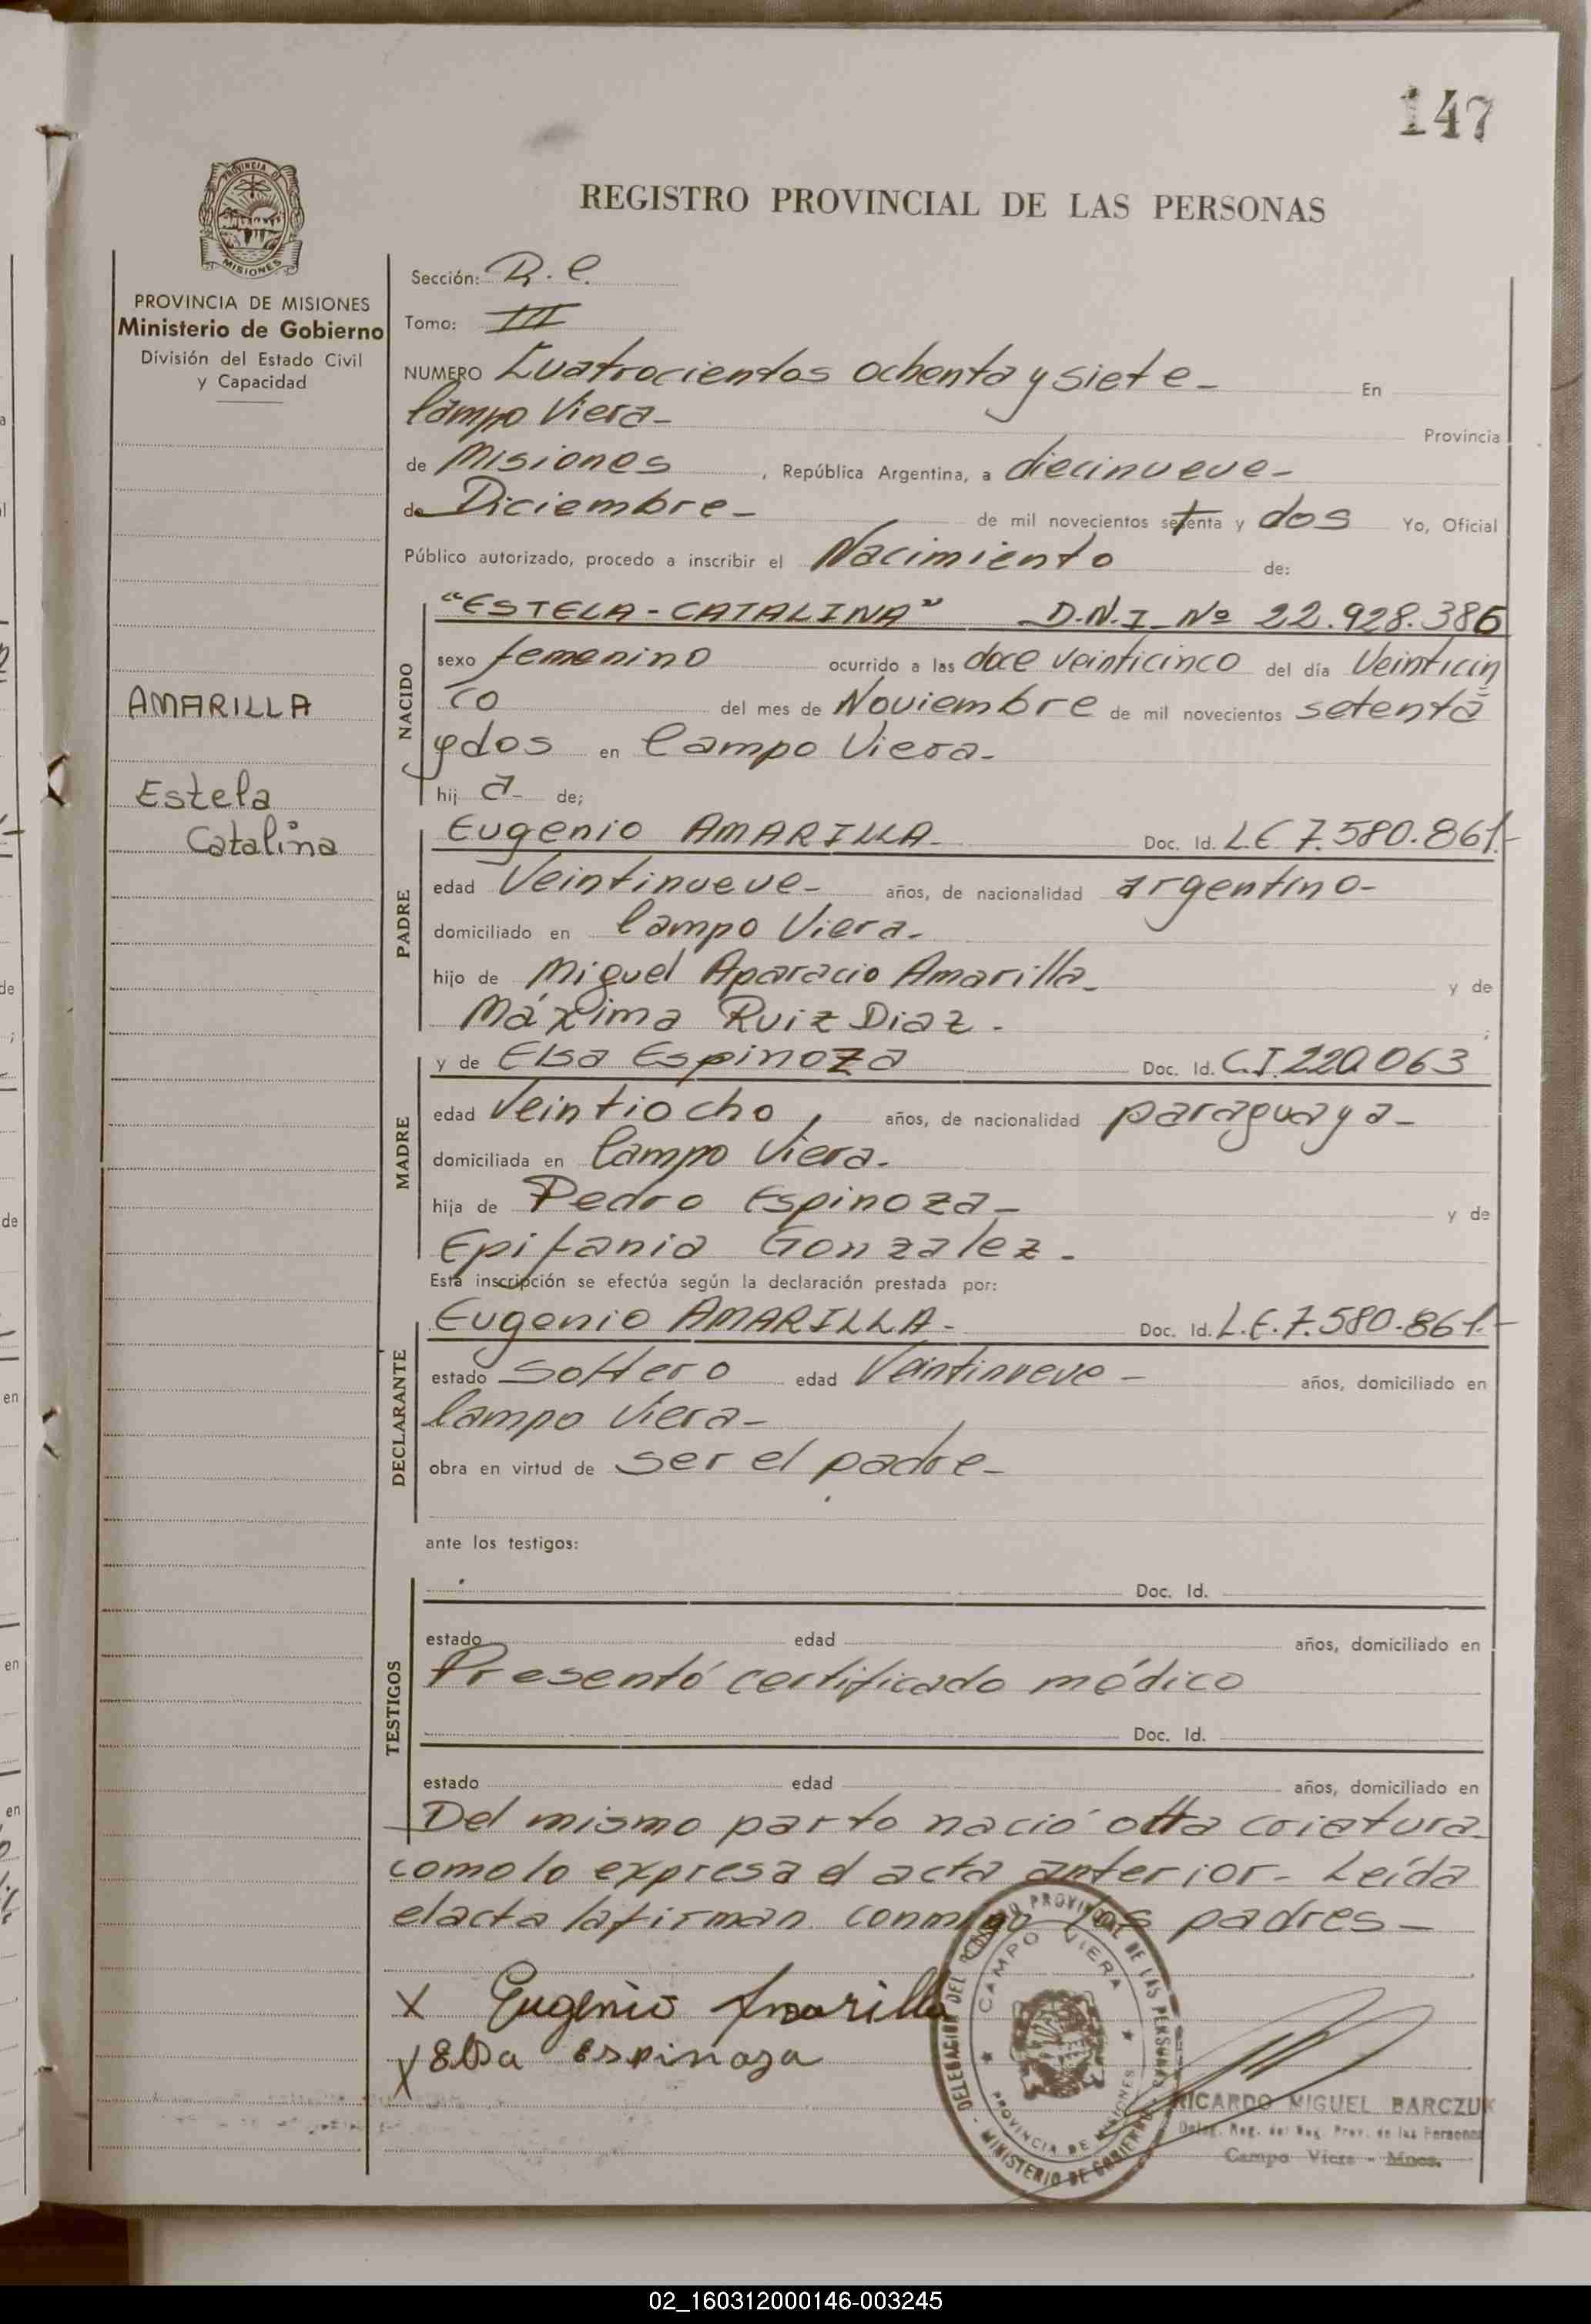 147
REGISTRO PROVINCIAL DE LAS PERSONAS
PROVINCIA DE
MISIONES
PROVINCIA DE MISIONES
Ministerio de Gobierno
División del Estado Civil
y Capacidad
AMARILLA
Estela
Catalina
Sección:
Tomo: III
NUMERO Cuatrocientos ochenta y siete - En
Campo Viera - Provincia
de Misiones, República Argentina, a diecinueve -
de Diciembre - de mil novecientos setenta y dos Yo, Oficial
Público autorizado, procedo a inscribir el Nacimiento de:
NACIDO
"ESTELA - CATALINA" D.N.I. Nº 22.928.386
sexo femenino ocurrido a las doce veinticinco del día Veinticin
co del mes de Noviembre de mil novecientos setenta
y dos en Campo Viera -
hij a - de;
PADRE
Eugenio AMARILLA - Doc. Id. L.E 7.580.861.-
edad Veintinueve - años, de nacionalidad argentino -
domiciliado en Campo Viera.
hijo de Miguel Aparacio Amarilla - y de
Máxima Ruiz Diaz - ;
MADRE
y de Elsa Espinoza Doc. Id. C.I. 220.063
edad Veintiocho, años, de nacionalidad paraguaya -
domiciliada en Campo Viera.
hija de Pedro Espinoza - y de
Epifania Gonzalez -
Esta inscripción se efectúa según la declaración prestada por:
DECLARANTE
Eugenio AMARILLA - Doc. Id. L.E. 7.580.861.-
estado Soltero edad Veintinueve - años, domiciliado en
Campo Viera -
obra en virtud de ser el padre -
ante los testigos:
TESTIGOS
Doc. Id.
estado edad años, domiciliado en
Presentó certificado médico
Doc. Id.
estado edad años, domiciliado en
Del mismo parto nació otra criatura
como lo expresa el acta anterior - Leída
el acta la firman conmigo los padres -
X Eugenio Amarilla
X Elsa espinoza
DELEGACION DEL REGISTRO PROVINCIAL DE LAS PERSONAS
CAMPO VIERA
PROVINCIA DE MISIONES
MINISTERIO DE GOBIERNO
RICARDO MIGUEL BARCZUK
Deleg. Reg. del Reg. Prov. de las Personas
Campo Viera - Mnes.
02_160312000146-003245